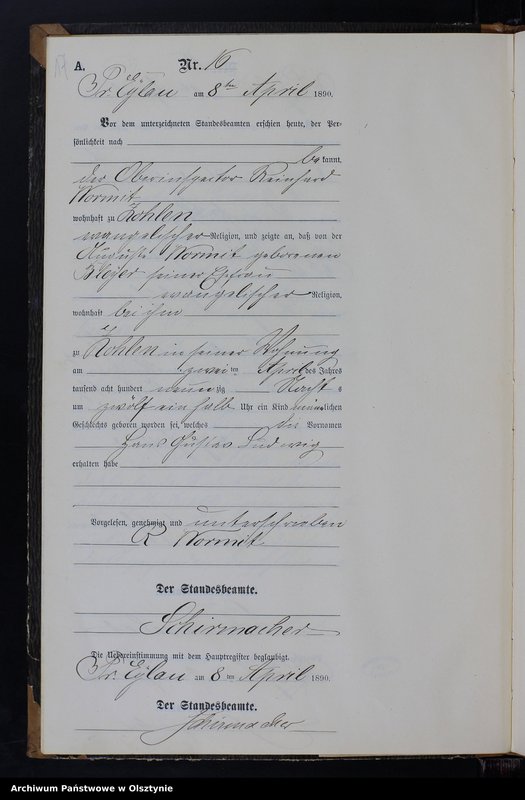 A. Nr. 16
Pr. Eylau am 8ten April 1890.
Vor dem unterzeichneten Standesbeamten erschien heute, der Per-
sönlichkeit nach
bekannt,
der Oberinspector Reinhard
Wormit
wohnhaft zu Zohlen
evangelischer Religion, und zeigte an, daß von der
Auguste Wormit geborenen
Meyer seiner Ehefrau
evangelischer Religion,
wohnhaft bei ihm
zu Zohlen in seiner Wohnung
am zweiten April des Jahres
tausend acht hundert neunzig Nachts
um zwölf ein halb Uhr ein Kind männlichen
Geschlechts geboren worden sei, welches die Vornamen
Hans Gustav Ludwig
erhalten habe
Vorgelesen, genehmigt und unterschrieben
R Wormit
Der Standesbeamte.
Schirmacher
Die Uebereinstimmung mit dem Hauptregister beglaubigt.
Pr. Eylau am 8ten April 1890.
Der Standesbeamte.
Schirmacher
Archiwum Państwowe w Olsztynie